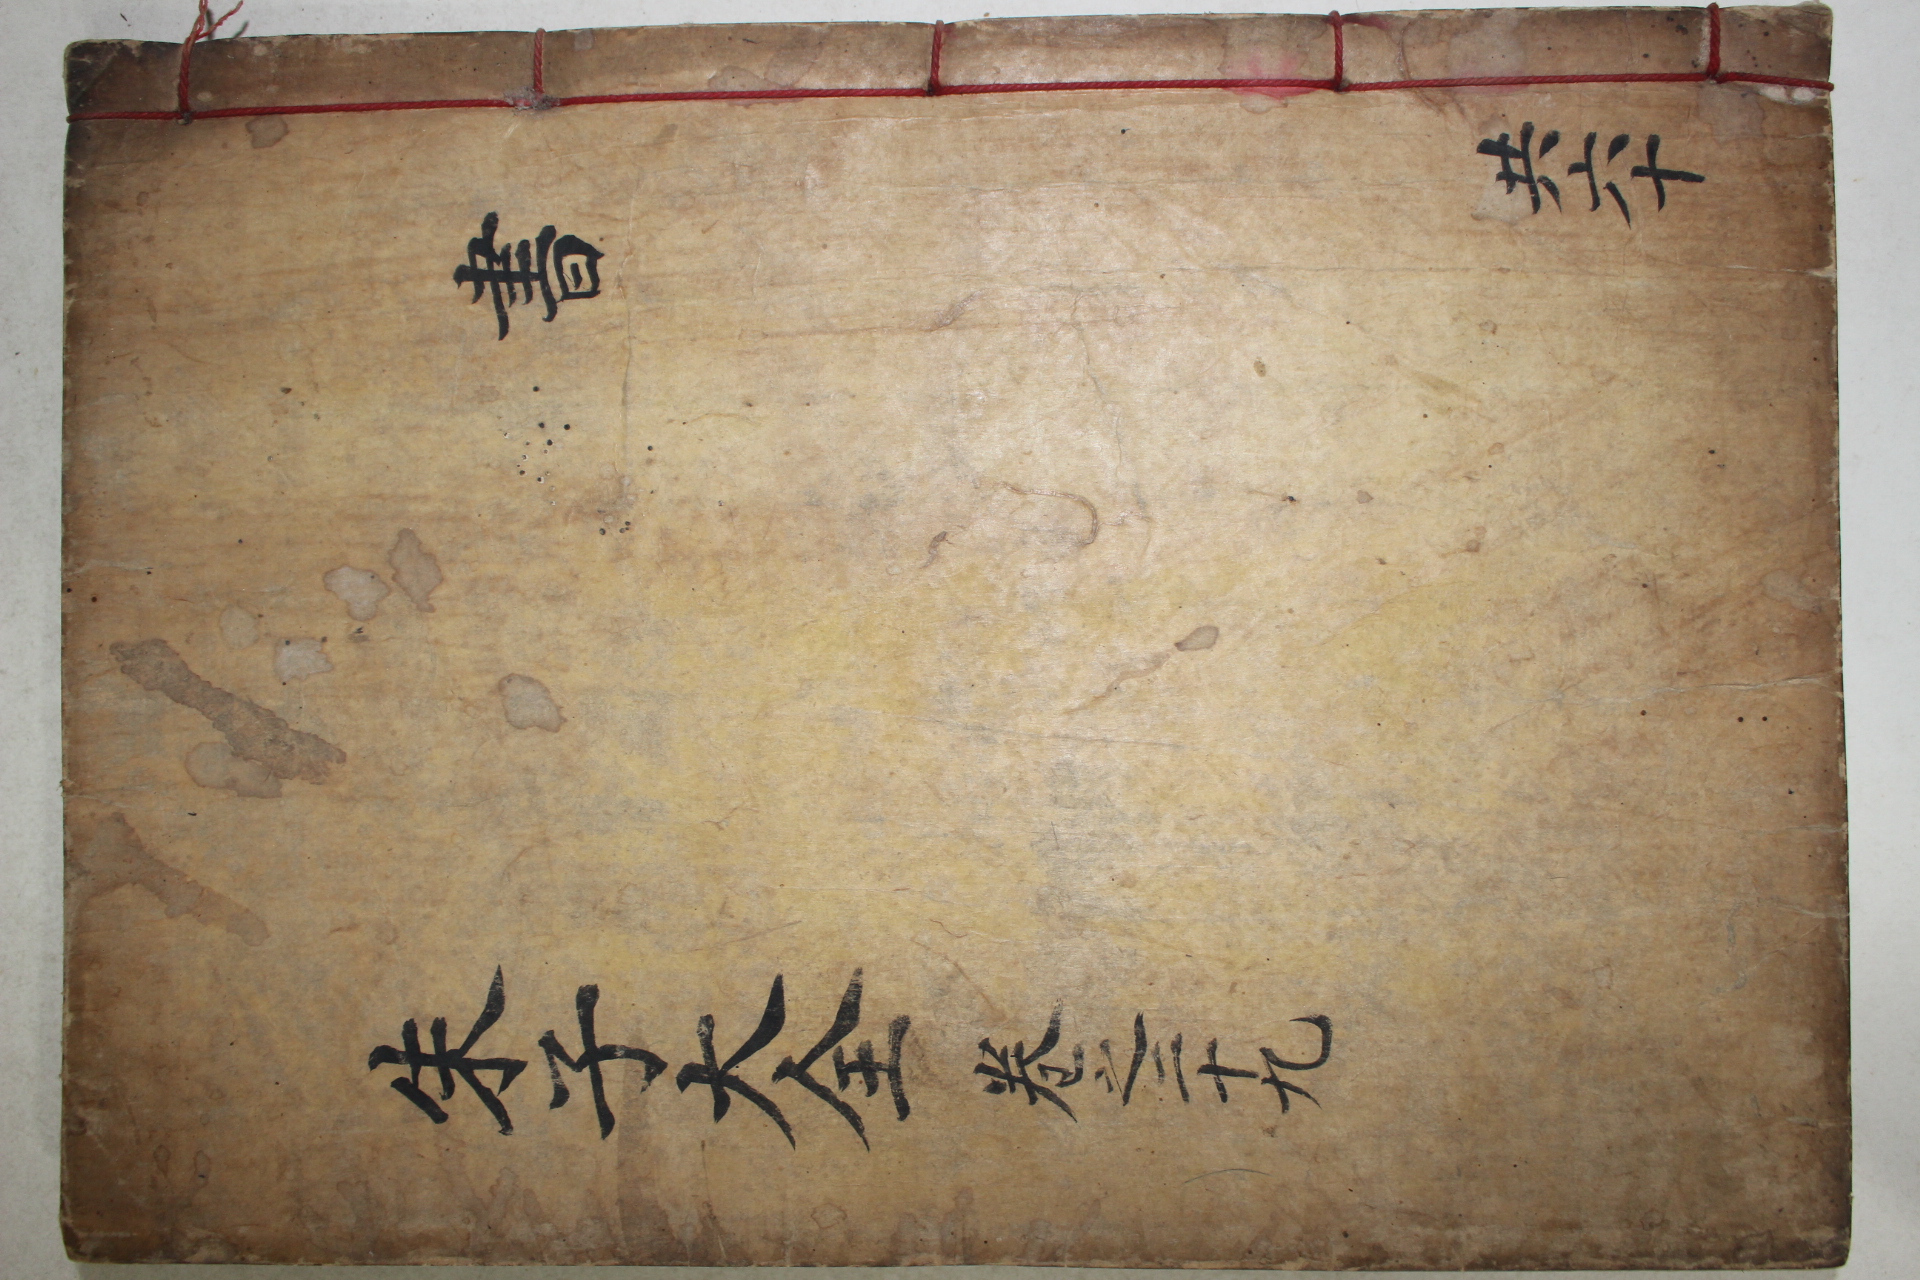 書
共六十
朱子大全 卷之二十九